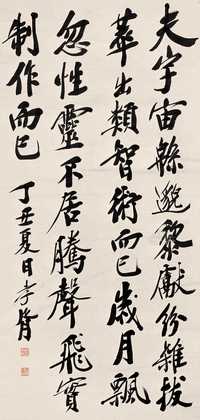 夫宇宙緜邈黎獻紛雜拔
萃出類智術而已歲月飄
忽性靈不居騰聲飛實
制作而已
丁丑夏日李